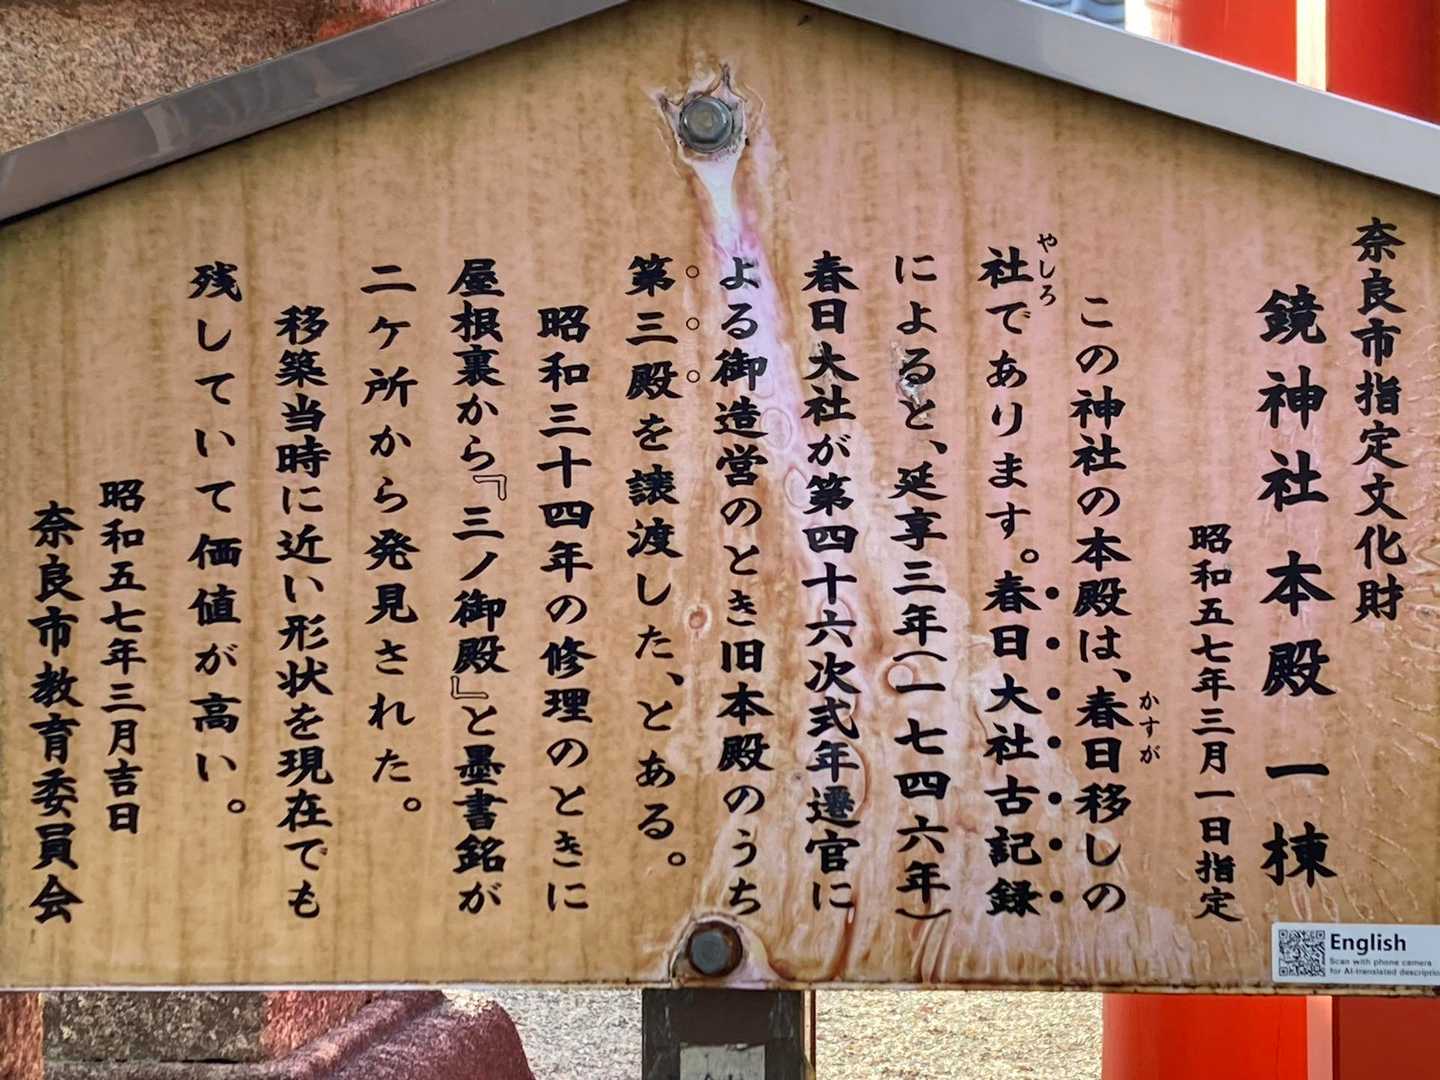 奈良市指定文化財
鏡神社 本殿 一棟
昭和五七年三月一日指定
この神社の本殿は、春日移しの
かすが
社であります。春日大社古記録
やしろ
によると、延享三年(一七四六年)
春日大社が第四十六次式年遷宮に
よる御造営のとき旧本殿のうち
第三殿を譲渡した、とある。
昭和三十四年の修理のときに
屋根裏から『三ノ御殿』と墨書銘が
二ヶ所から発見された。
移築当時に近い形状を現在でも
残していて価値が高い。
昭和五七年三月吉日
奈良市教育委員会
English
Scan with phone camera
for AI-translated descriptio